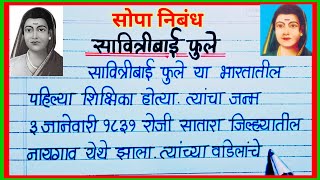 सोपा निबंध
सावित्रीबाई फुले
सावित्रीबाई फुले या भारतातील
पहिल्या शिक्षिका होत्या. त्यांचा जन्म
३ जानेवारी १८३१ रोजी सातारा जिल्ह्यातील
नायगाव येथे झाला. त्यांच्या वडिलांचे